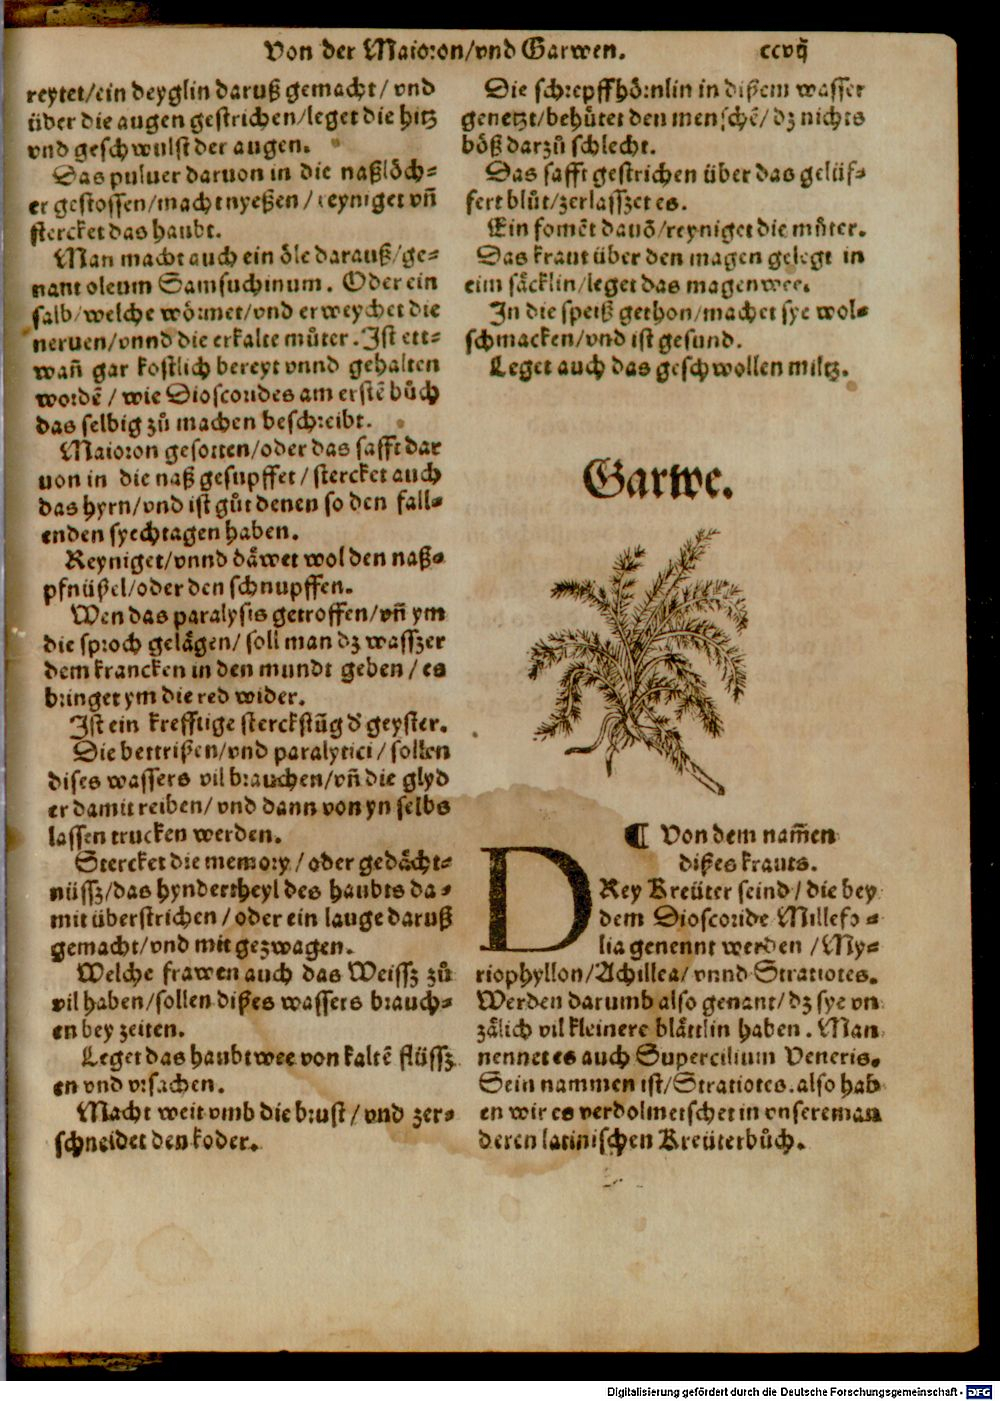 Von der Maioron/vnd Garwen. ccvij
reytet/ein deyglin daruß gemacht/ vnd
über die augen gestrichen/leget die hitz
vnd geschwulst der augen.
Das puluer daruon in die naßlöch-
er gestossen/macht nyeßen/ reyniget vñ
stercket das haubt.
Man macht auch ein öle darauß/ge-
nant oleum Samsuchinum. Oder ein
salb/welche wörmet/vnd erweychet die
neruen/vnnd die erkalte můter. Ist ett-
wañ gar kostlich bereyt vnnd gehalten
wordē / wie Dioscorides am erstē bůch
das selbig zů machen beschreibt.
Maioron gesotten/oder das safft dar
uon in die naß gesupffet / stercket auch
das hyrn/vnd ist gůt denen so den fall-
enden syechtagen haben.
Reyniget/vnnd däwet wol den naß-
pfnüßel/oder den schnupffen.
Wen das paralysis getroffen/vñ ym
die sproch gelägen/ soll man dz wasszer
dem krancken in den mundt geben / es
bringet ym die red wider.
Ist ein krefftige sterckũg d' geyster.
Die bettrißen/vnd paralytici / sollen
dises wassers vil brauchen/vñ die glyd
er damit reiben/ vnd dann von yn selbs
lassen trucken werden.
Stercket die memory / oder gedächt-
nüssz/das hyndertheyl des haubts da-
mit überstrichen / oder ein lauge daruß
gemacht/vnd mit gezwagen.
Welche frawen auch das Weissz zů
vil haben/sollen dißes wassers brauch-
en bey zeiten.
Leget das haubtwee von kaltē flüssz
en vnd vrsachen.
Macht weit vmb die brust / vnd zer-
schneidet den koder.
Die schrepffhörnlin in dißem wasser
genetzt/behůtet den menschē/ dz nichts
böß darzů schlecht.
Das safft gestrichen über das gelüf-
fert blůt/zerlasszet es.
Ein fomēt dauō/reyniget die můter.
Das kraut über den magen gelegt in
eim säcklin/leget das magenwee.
In die speiß gethon/machet sye wol-
schmacken/vnd ist gesund.
Leget auch das geschwollen miltz.
Garwe.
¶ Von dem nam̃en
dißes krauts.
DRey Kreüter seind / die bey
dem Dioscoride Millefo-
lia genennt werden /My-
riophyllon/Achillea/ vnnd Stratiotes.
Werden darumb also genant/ dz sye vn
zälich vil kleinere blättlin haben. Man
nennet es auch Supercilium Veneris.
Sein nammen ist/Stratiotes. also hab
en wir es verdolmetschet in vnserem an
deren latinischen Kreüterbůch.
Digitalisierung gefördert durch die Deutsche Forschungsgemeinschaft - DFG